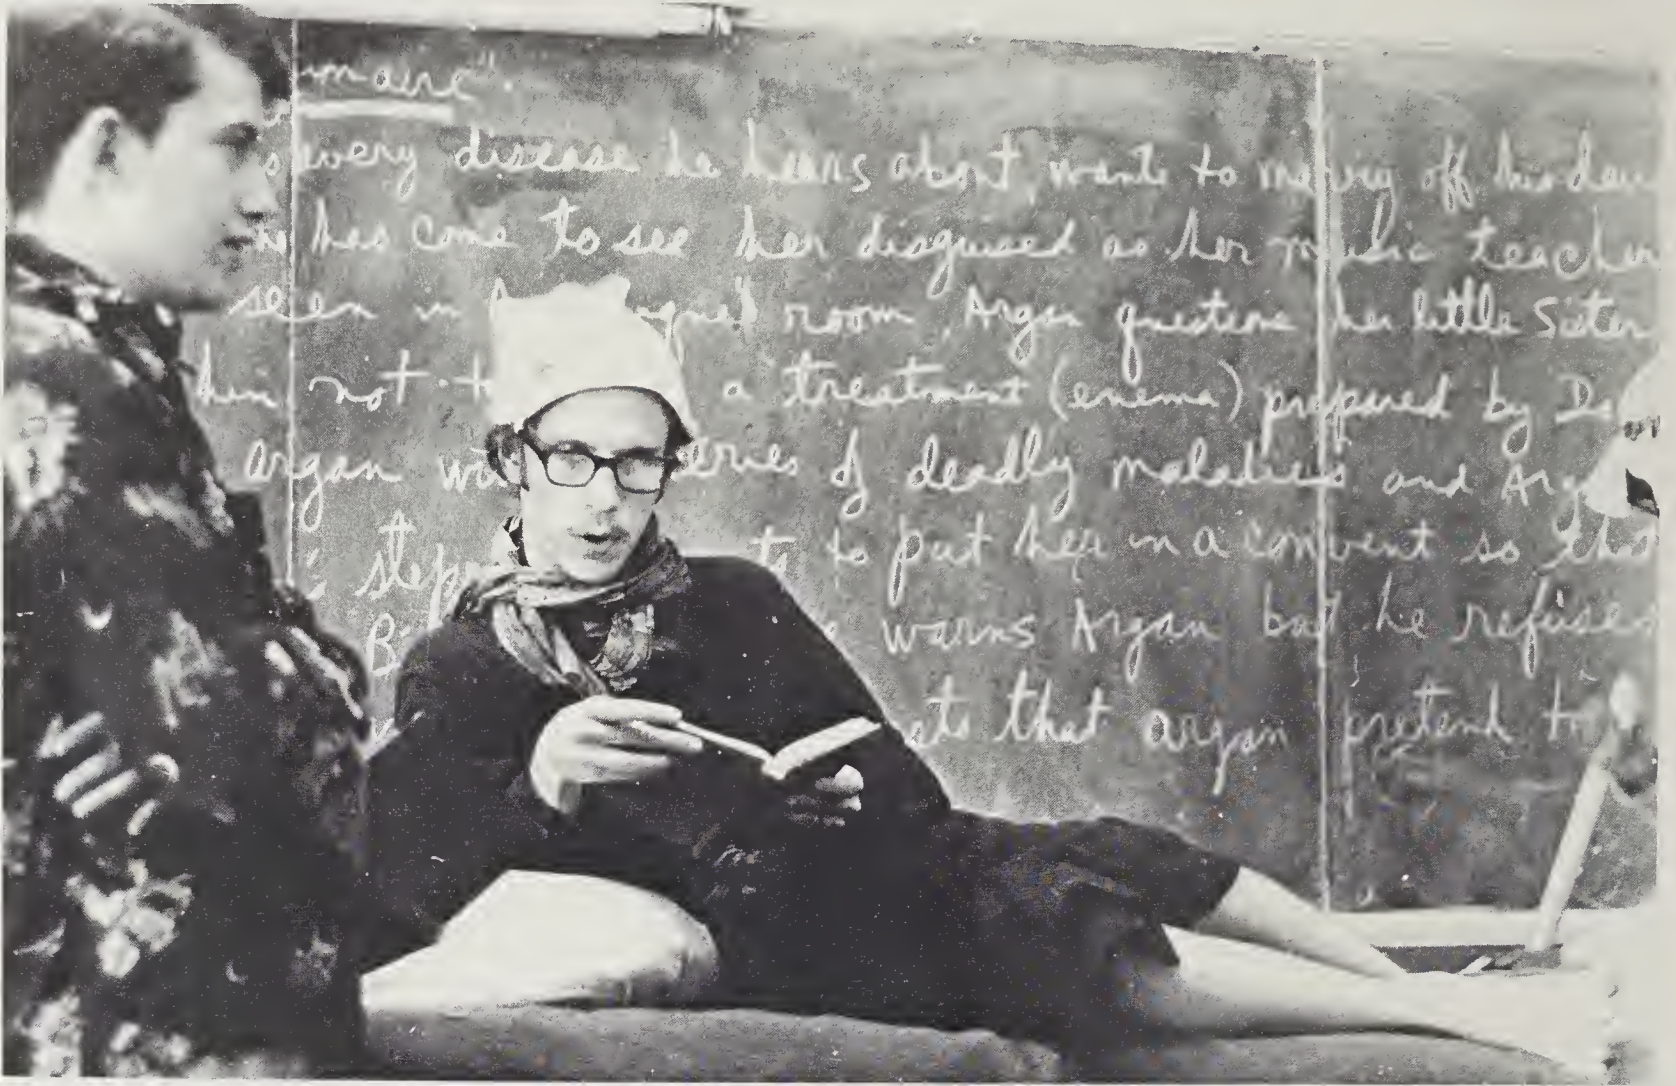 maire".
every disease he hears about, wants to marry off his dau
he has come to see her disguised as her music teacher
seen in room, Argan questions her little Sister
him not a treatment (enema) prepared by
argan of deadly maladies and Arg
to put her in a convent so that
warns Argan but he refuses
that argan pretend to